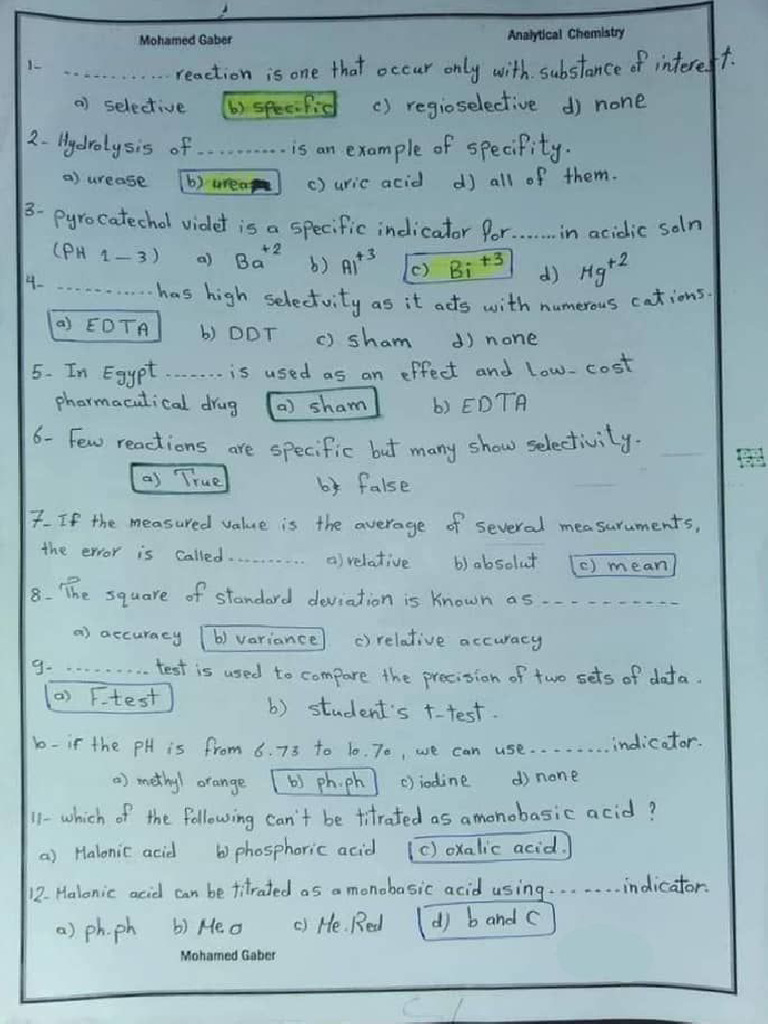 Mohamed Gaber Analytical Chemistry
1- ............ reaction is one that occur only with substance of interest.
a) selective b) specific c) regioselective d) none
2- Hydrolysis of .......... is an example of specifity.
a) urease b) urea c) uric acid d) all of them.
3- Pyrocatechol violet is a specific indicator for....... in acidic soln
(PH 1 – 3) a) Ba+2 b) Al+3 c) Bi+3 d) Hg+2
4- ............ has high selectvity as it acts with numerous cations.
a) EDTA b) DDT c) sham d) none
5- In Egypt ....... is used as an effect and low-cost
pharmacutical drug a) sham b) EDTA
6- Few reactions are specific but many show selectivity.
a) True b) false
7- If the measured value is the average of several measuruments,
the error is called .......... a) relative b) absolut c) mean
8- The square of standard deviation is known as -----------
a) accuracy b) variance c) relative accuracy
9- .......... test is used to compare the precision of two sets of data.
a) F-test b) student's t-test.
10- if the PH is from 6.73 to 10.70, we can use ......... indicator.
a) methyl orange b) ph.ph c) iodine d) none
11- which of the following can't be titrated as a monobasic acid ?
a) Malonic acid b) phosphoric acid c) oxalic acid.
12- Malonic acid can be titrated as a monobasic acid using ....... indicator.
a) ph.ph b) Me o c) Me.Red d) b and c
Mohamed Gaber